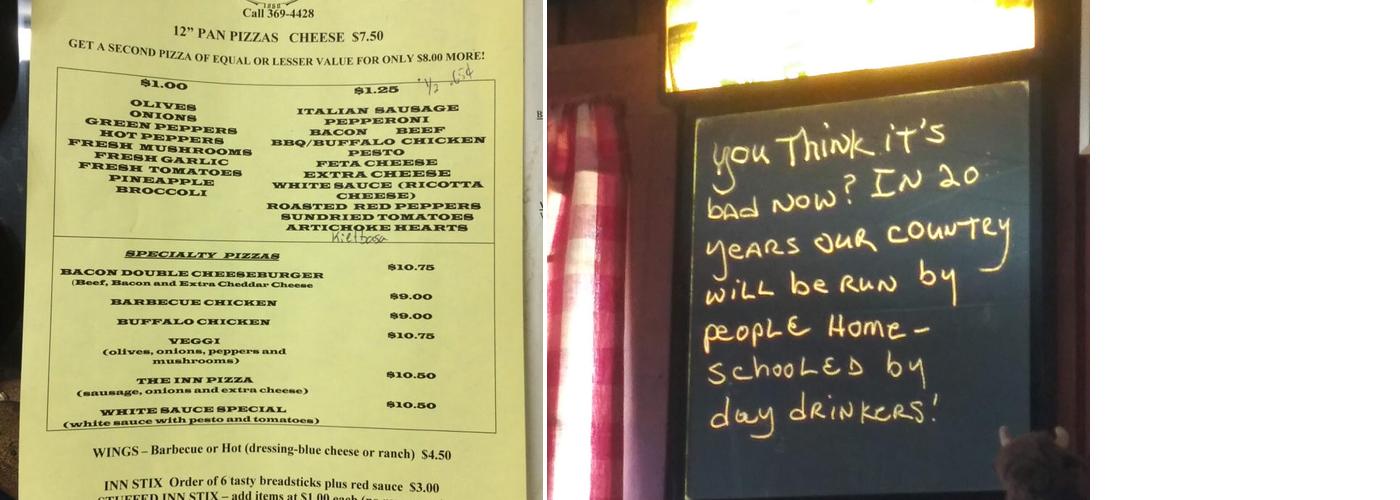 1868
Call 369-4428
12” PAN PIZZAS CHEESE $7.50
GET A SECOND PIZZA OF EQUAL OR LESSER VALUE FOR ONLY $8.00 MORE!
$1.00
OLIVES
ONIONS
GREEN PEPPERS
HOT PEPPERS
FRESH MUSHROOMS
FRESH GARLIC
FRESH TOMATOES
PINEAPPLE
BROCCOLI
$1.25
1/2 .65¢
ITALIAN SAUSAGE
PEPPERONI
BACON BEEF
BBQ/BUFFALO CHICKEN
PESTO
FETA CHEESE
EXTRA CHEESE
WHITE SAUCE (RICOTTA
CHEESE)
ROASTED RED PEPPERS
SUNDRIED TOMATOES
ARTICHOKE HEARTS
Kielbasa
SPECIALTY PIZZAS
BACON DOUBLE CHEESEBURGER $10.75
(Beef, Bacon and Extra Cheddar Cheese
BARBECUE CHICKEN $9.00
BUFFALO CHICKEN $9.00
VEGGI $10.75
(olives, onions, peppers and
mushrooms)
THE INN PIZZA $10.50
(sausage, onions and extra cheese)
WHITE SAUCE SPECIAL $10.50
(white sauce with pesto and tomatoes)
WINGS – Barbecue or Hot (dressing-blue cheese or ranch) $4.50
INN STIX Order of 6 tasty breadsticks plus red sauce $3.00
STUFFED INN STIX – add items at $1.00 each
you Think it's
bad NOW? IN 20
years our country
will be run by
people Home-
schooled by
day drinkers!